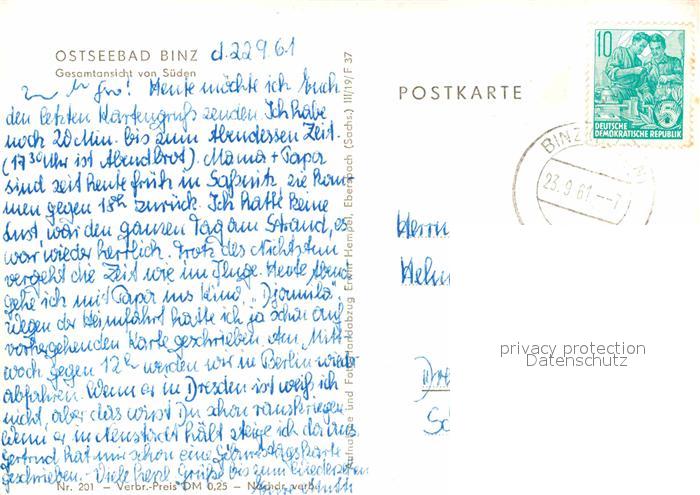 OSTSEEBAD BINZ d. 22.9.61
Gesamtansicht von Süden
Heute möchte ich Euch
den letzten Kartengruß senden. Ich habe
noch 20 Min. bis zum Abendessen Zeit.
(17 30 Uhr ist Abendbrot). Mama + Papa
sind seit heute früh in Saßnitz, sie kom-
men gegen 18h zurück. Ich hatte keine
Lust, war den ganzen Tag am Strand, es
war wieder herrlich. Trotz des Nichtstun
vergeht die Zeit wie im Fluge. Heute Abend
gehe ich mit Papa ins Kino, "Djamila".
Wegen der Heimfahrt hatte ich ja schon auf
vorhergehenden Karte geschrieben. Am Mitt-
woch gegen 12h werden wir in Berlin wieder
abfahren. Wenn er in Dresden ist weiß ich
nicht, aber das wirst Du schon rauskriegen.
Wenn er in Neustadt hält steige ich da aus.
Gertrud hat mir schon eine Geburtstagskarte
geschrieben. Viele Grüße bis zum
Nr. 201 — Verbr.-Preis DM 0,25 — Nachdr. verb.
Aufnahme und Foto-Handabzug Erwin Hempel, Ebersbach (Sachs.) III/19/F 37
POSTKARTE
10
5
DEUTSCHE
DEMOKRATISCHE REPUBLIK
BINZ
23.9.61.--7
Herrn
Helm
privacy protection
Datenschutz